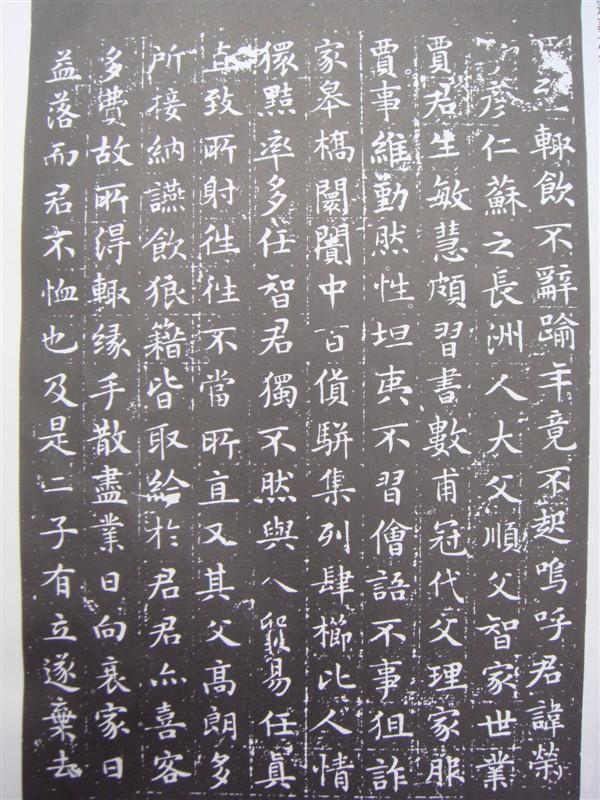 之輒飲不辭踰年竟不起嗚呼君諱榮
彥仁蘇之長洲人大父順父智家世業
賈君生敏慧頗習書數甫冠代父理家服
賈事維勤然性坦夷不習儈語不事狙詐
家皋橋闤闠中百貨駢集列肆櫛比人情
獧黠率多任智君獨不然與人貿易任眞
致所射往往不當所直又其父高朗多
所接納讌飲狼籍皆取給於君君亦喜容
多費故所得輒緣手散盡業日向衰家日
益落而君不恤也及是二子有立遂棄去